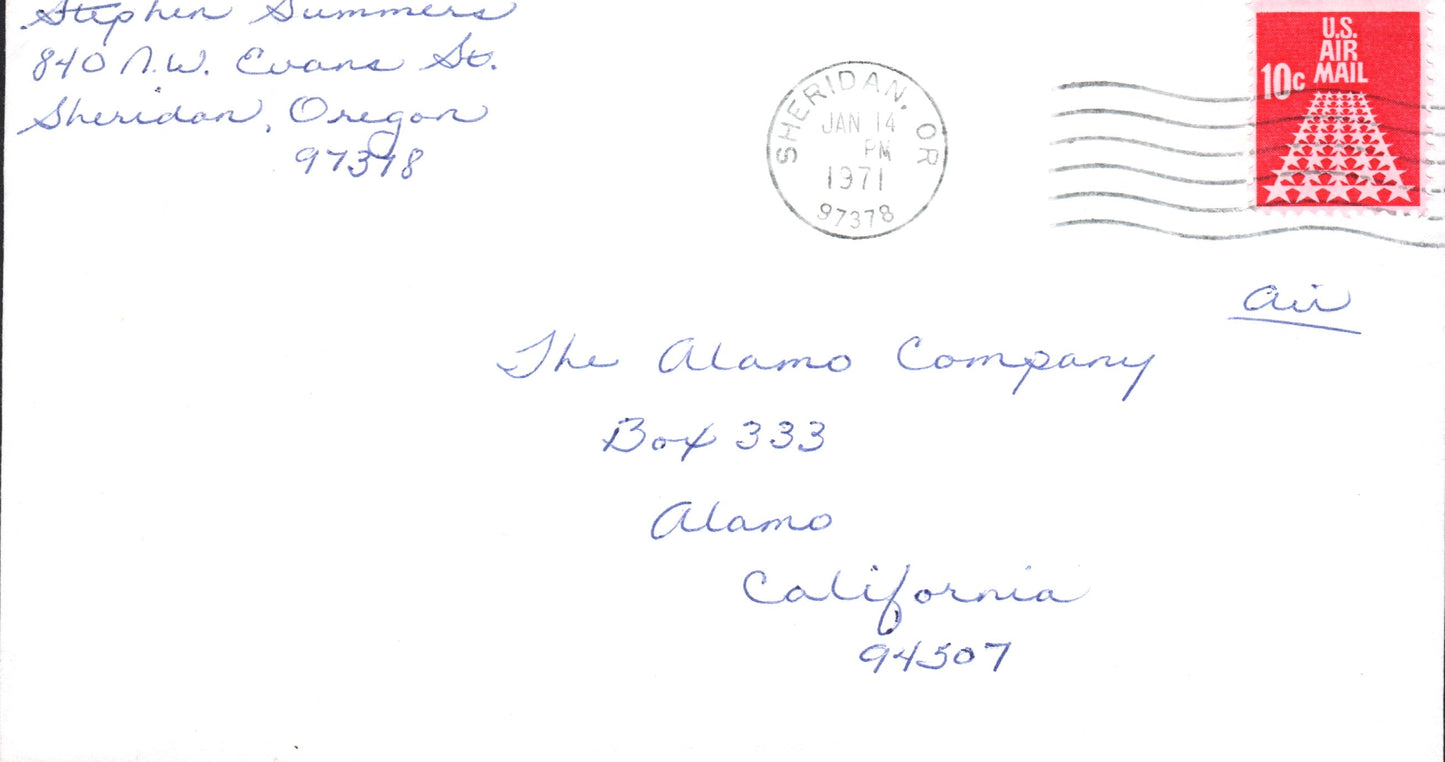 Stephen Summers
840 N.W. Evans St.
Sheridan, Oregon
97378
SHERIDAN, OR
JAN 14
PM
1971
97378
U.S.
AIR
MAIL
10c
Air
The Alamo Company
Box 333
Alamo
California
94507